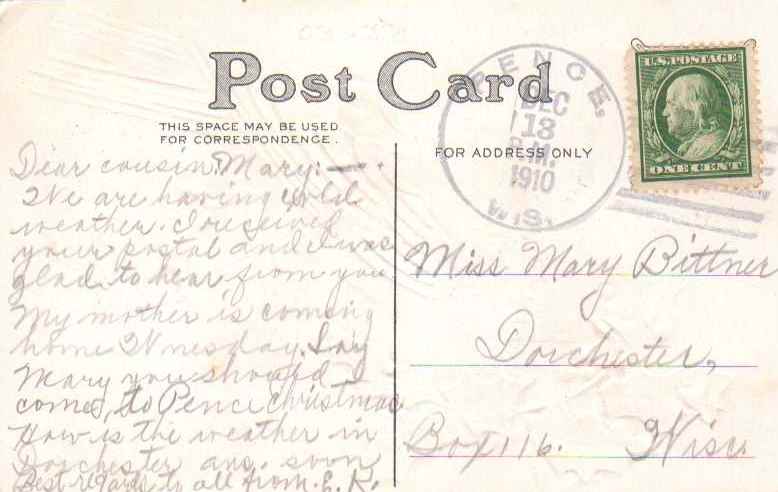 Post Card
THIS SPACE MAY BE USED
FOR CORRESPONDENCE.
FOR ADDRESS ONLY
PENCE,
DEC
13
1910
WIS.
U.S. POSTAGE
ONE CENT
Dear cousin Mary:—.
We are having cold
weather. I received
your postal and I was
glad to hear from you
My mother is coming
home Wnesday. Say
Mary you should
come, to Pence christmas
How is the weather in
Dorchester ans. soon
Best regards to all from. E. K.
Miss Mary Bittner
Dorchester,
Box 116. Wisc.